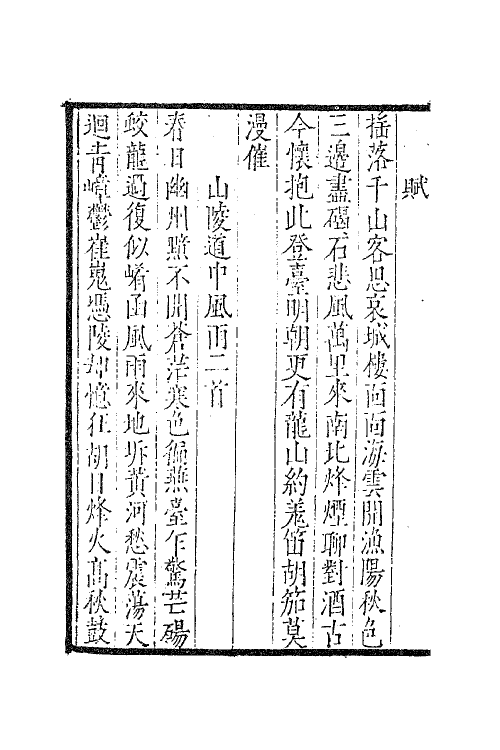 賦
搖落千山客思哀城樓面面海雲開漁陽秋色
三邊盡碣石悲風萬里來南北烽煙聊對酒古
今懷抱此登臺明朝更有龍山約羗笛胡笳莫
漫催
山陵道中風雨二首
春日幽州曠不開蒼茫寒色徧燕臺乍驚芒碭
蛟龍過復似崤函風雨來地坼黃河愁震蕩天
迴青嶂鬱崔嵬憑陵却憶狂胡日烽火高秋鼓